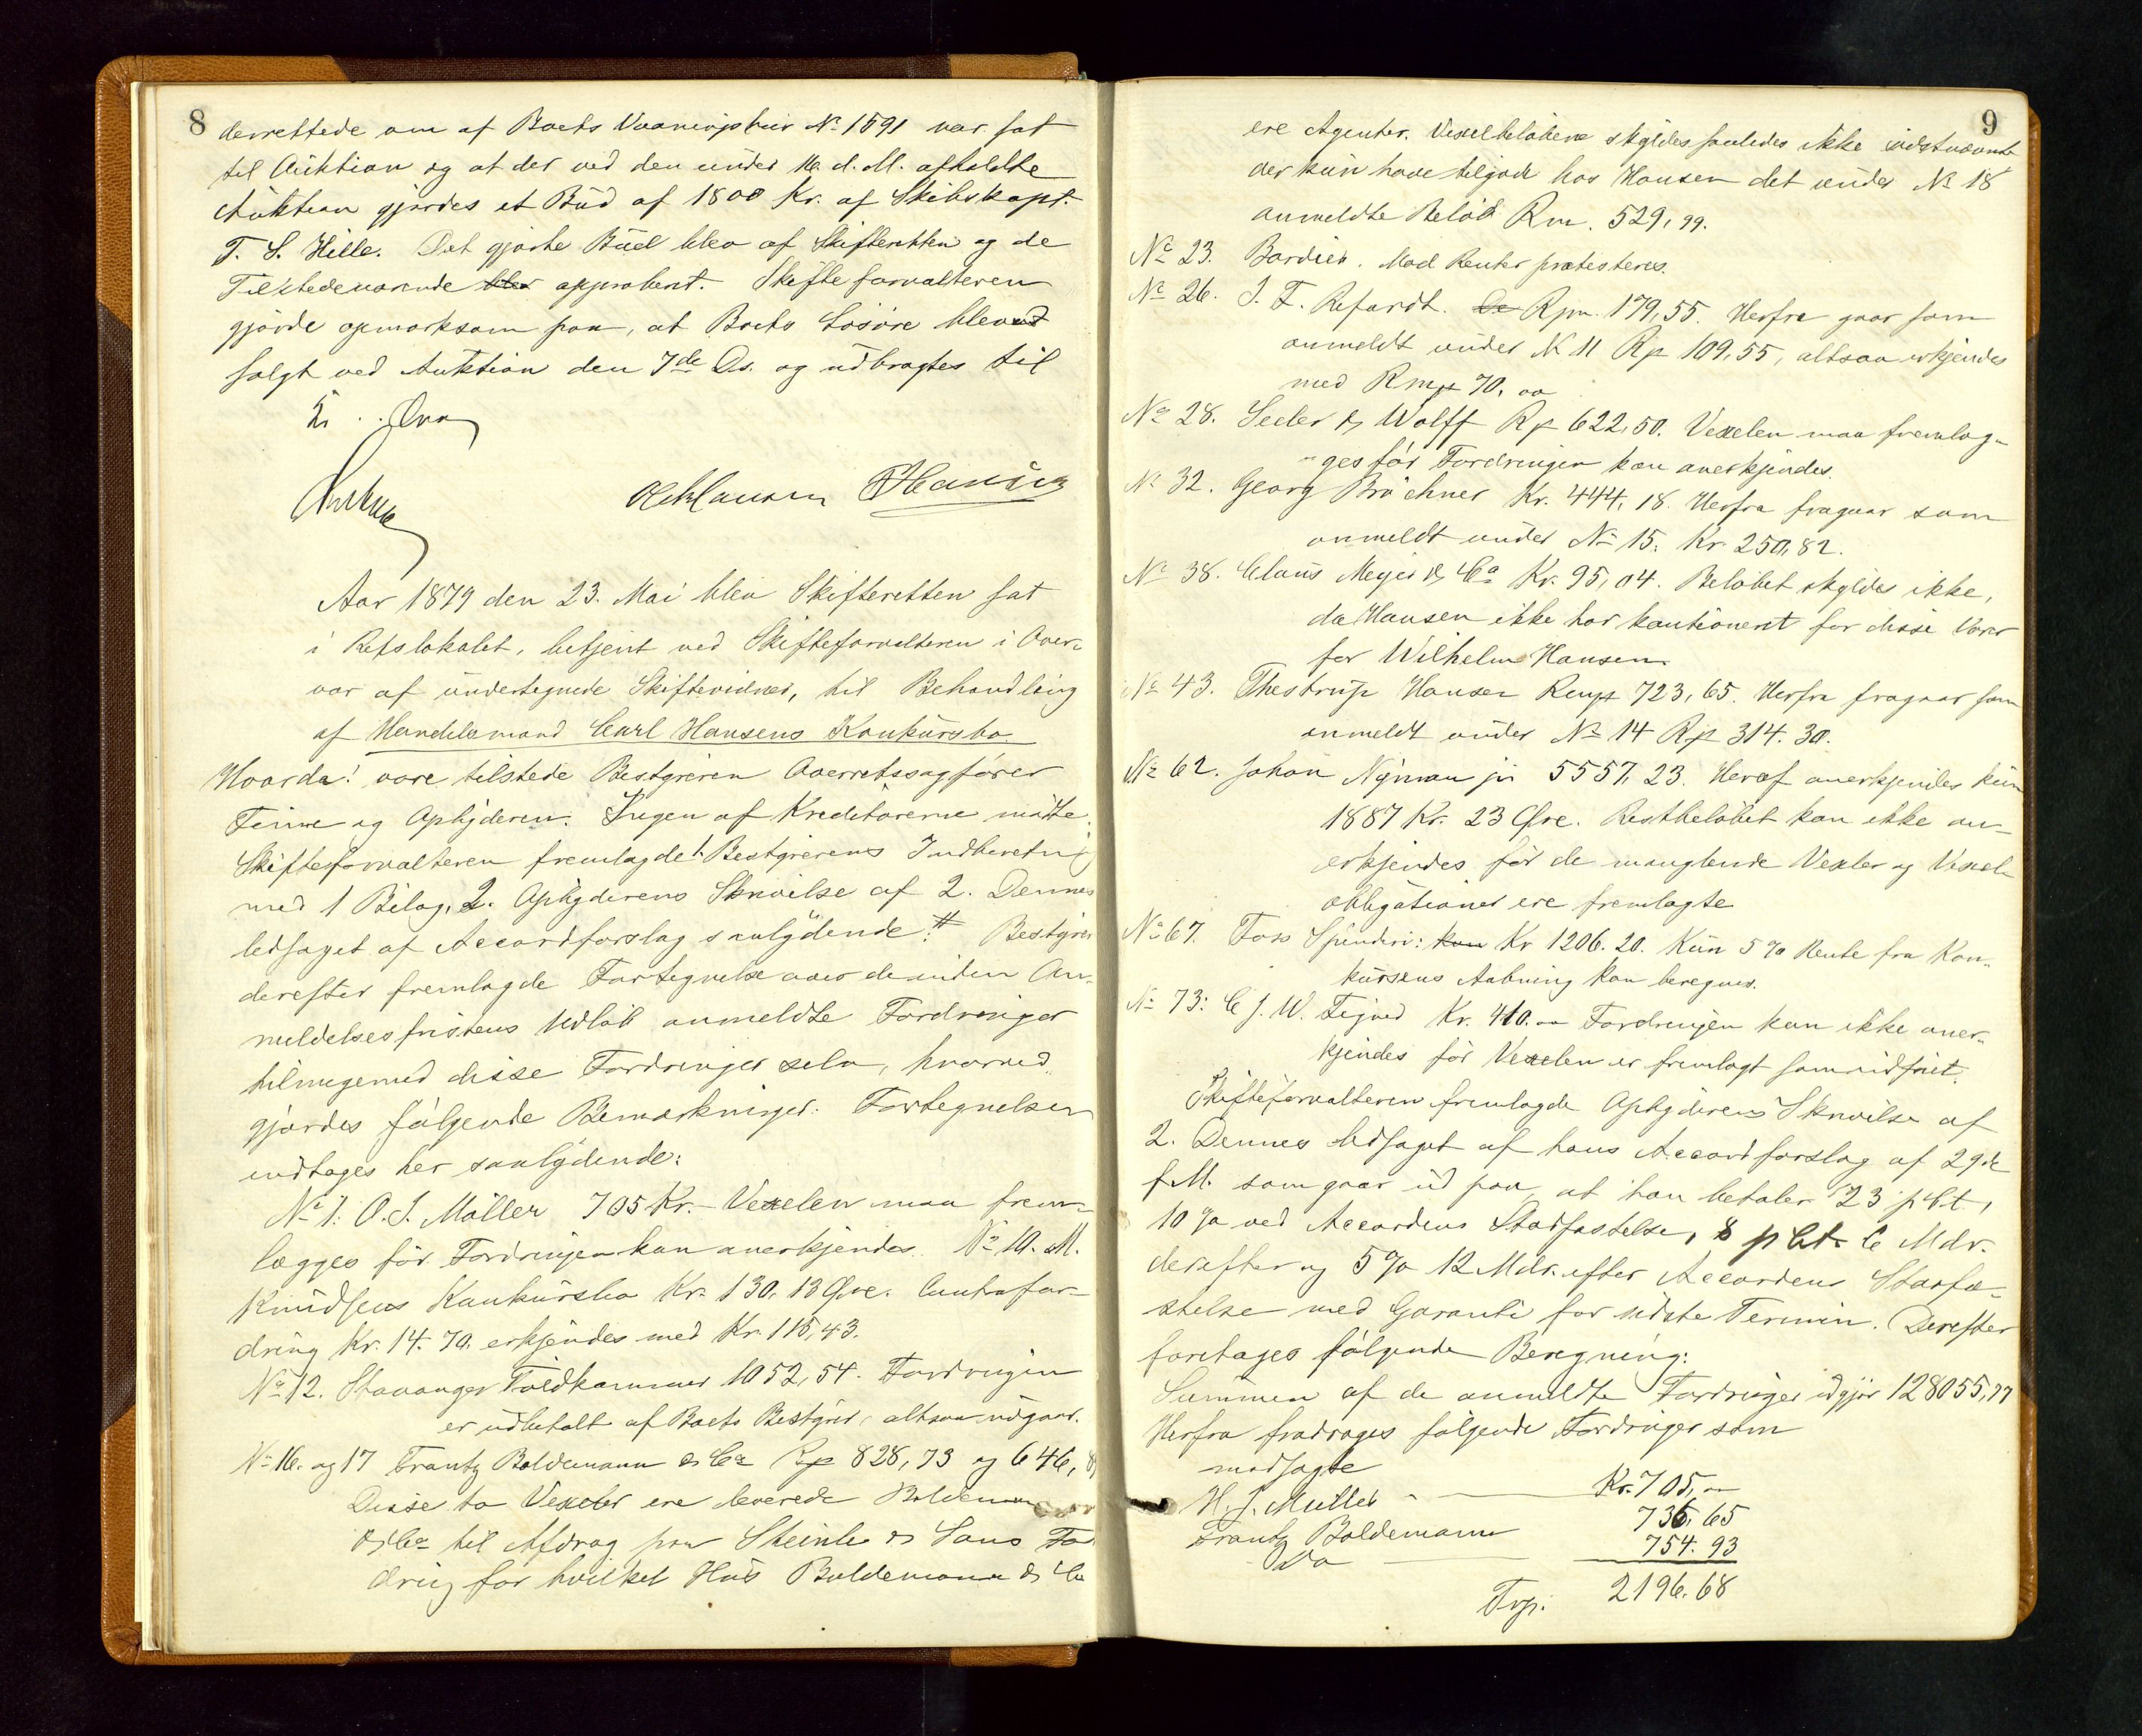 8
derrettede om af Boets Vaaningshus No 1591 var sat
til Auktion og at der ved den under 16. d. M. afholdte
Auktion gjordes et Bud af 1800 Kr. af Skibskapt.
T. S. Hille. Det gjorte Bud blev af Skifteretten og de
Tilstedeværende blev approbert. Skifteforvalteren
gjorde opmærksom paa, at Boets Løsøre blev
solgt ved Auktion den 7de Ds. og udbragtes til
Aar 1879 den 23. Mai blev Skifteretten sat
i Retslokalet, betjent ved Skifteforvalteren i Over-
vær af undertegnede Skiftevidner, til Behandling
af Handelsmand Carl Hansens Konkursbo
Hvorda! vare tilstede Bestyreren Overretssagfører
Finne og Opbyderen. Ingen af Kreditorerne mødte.
Skifteforvalteren fremlagde 1. Bestyrerens Indberetning
med 1 Bilag, 2. Opbyderens Skrivelse af 2. Dennes
ledsaget af Accordforslag saalydende: # Bestyrer
derefter fremlagde Fortegnelse over de inden An-
meldelsesfristens Udløb anmeldte Fordringer
tilligemed disse Fordringer selv, hvorved
gjordes følgende Bemærkninger. Fortegnelsen
indtages her saalydende:
No 1: O. J. Møller 705 Kr. - Vexelen maa frem-
lægges før Fordringen kan anerkjendes. No 10. M.
Knudsens Konkursbo Kr. 130, 13 Øre. Contrafor-
dring Kr. 14. 70. erkjendes med Kr. 115,43.
No 12. Stavanger Toldkammer 1052,54. Fordringen
er udbetalt af Boets Bestyrer, altsaa udgaar.
No 16. og 17 Frantz Boldemann & Co Rp 828,73 og 646,
Disse to Vexeler ere leverede
& Co til Afdrag paa Steinle & Søns For
dring for hvilket Hus Boldemann & Co
9
ere Agenter. Vexelbeløbene skyldes saaledes ikke
der kun have tilgode hos Hansen det under No 18
anmeldte Beløb Rm. 529,99.
No 23. Bardien. Mod Renter protesteres.
No 26. J. F. Refardt. Rpm. 179,55. Herfra gaar som
anmeldt under No 11 Rp 109,55, altsaa erkjendes
med Rmp 70, oo
No 28. Seeler & Wolff Rp 622,50. Vexelen maa fremlæg-
ges før Fordringen kan anerkjendes.
No 32. Georg Bröchner Kr. 444,18. Herfra fragaar som
anmeldt under No 15: Kr. 250,82.
No 38. Claus Meyer & Co Kr. 95,04. Beløbet skyldes ikke,
da Hansen ikke har kautioneret for disse Varer
for Wilhelm Hansen.
No 43. Thestrup Hansen Rmp 723,65. Herfra fragaar som
anmeldt under No 14 Rp 314. 30.
No 62. Johan Nyman jr 5557,23. Heraf anerkjendes kun
1887 Kr. 23 Øre. Restbeløbet kan ikke an-
erkjendes før de manglende Vexler og Vexel-
obligationer ere fremlagte
No 67. Foss Spinderi: Kr 1206. 20. Kun 5 % Rente fra Kon-
kursens Aabning kan beregnes.
No 73: C. J. W. Kr. 410.oo Fordringen kan ikke aner-
kjendes før Vexelen er fremlagt
Skifteforvalteren fremlagde Opbyderens Skrivelse af
2. Dennes ledsaget af hans Accordforslag af 29de
f. M. som gaar ud paa, at han betaler 23 p Ct.,
10 % ved Accordens Stadfæstelse, 8 p Ct. 6 Mdr.
derefter og 5 % 12 Mdr. efter Accordens Stadfæ-
stelse med Garanti for sidste Termin. Derefter
foretages følgende Beregning:
Summen af de anmeldte Fordringer udgjør 128055,77
Herfra fradrages følgende Fordringer som
modsagte
H. J. Müller - Kr. 705,oo
Frantz Boldemann 736,65
Do 754. 93
Trp. 2196. 68